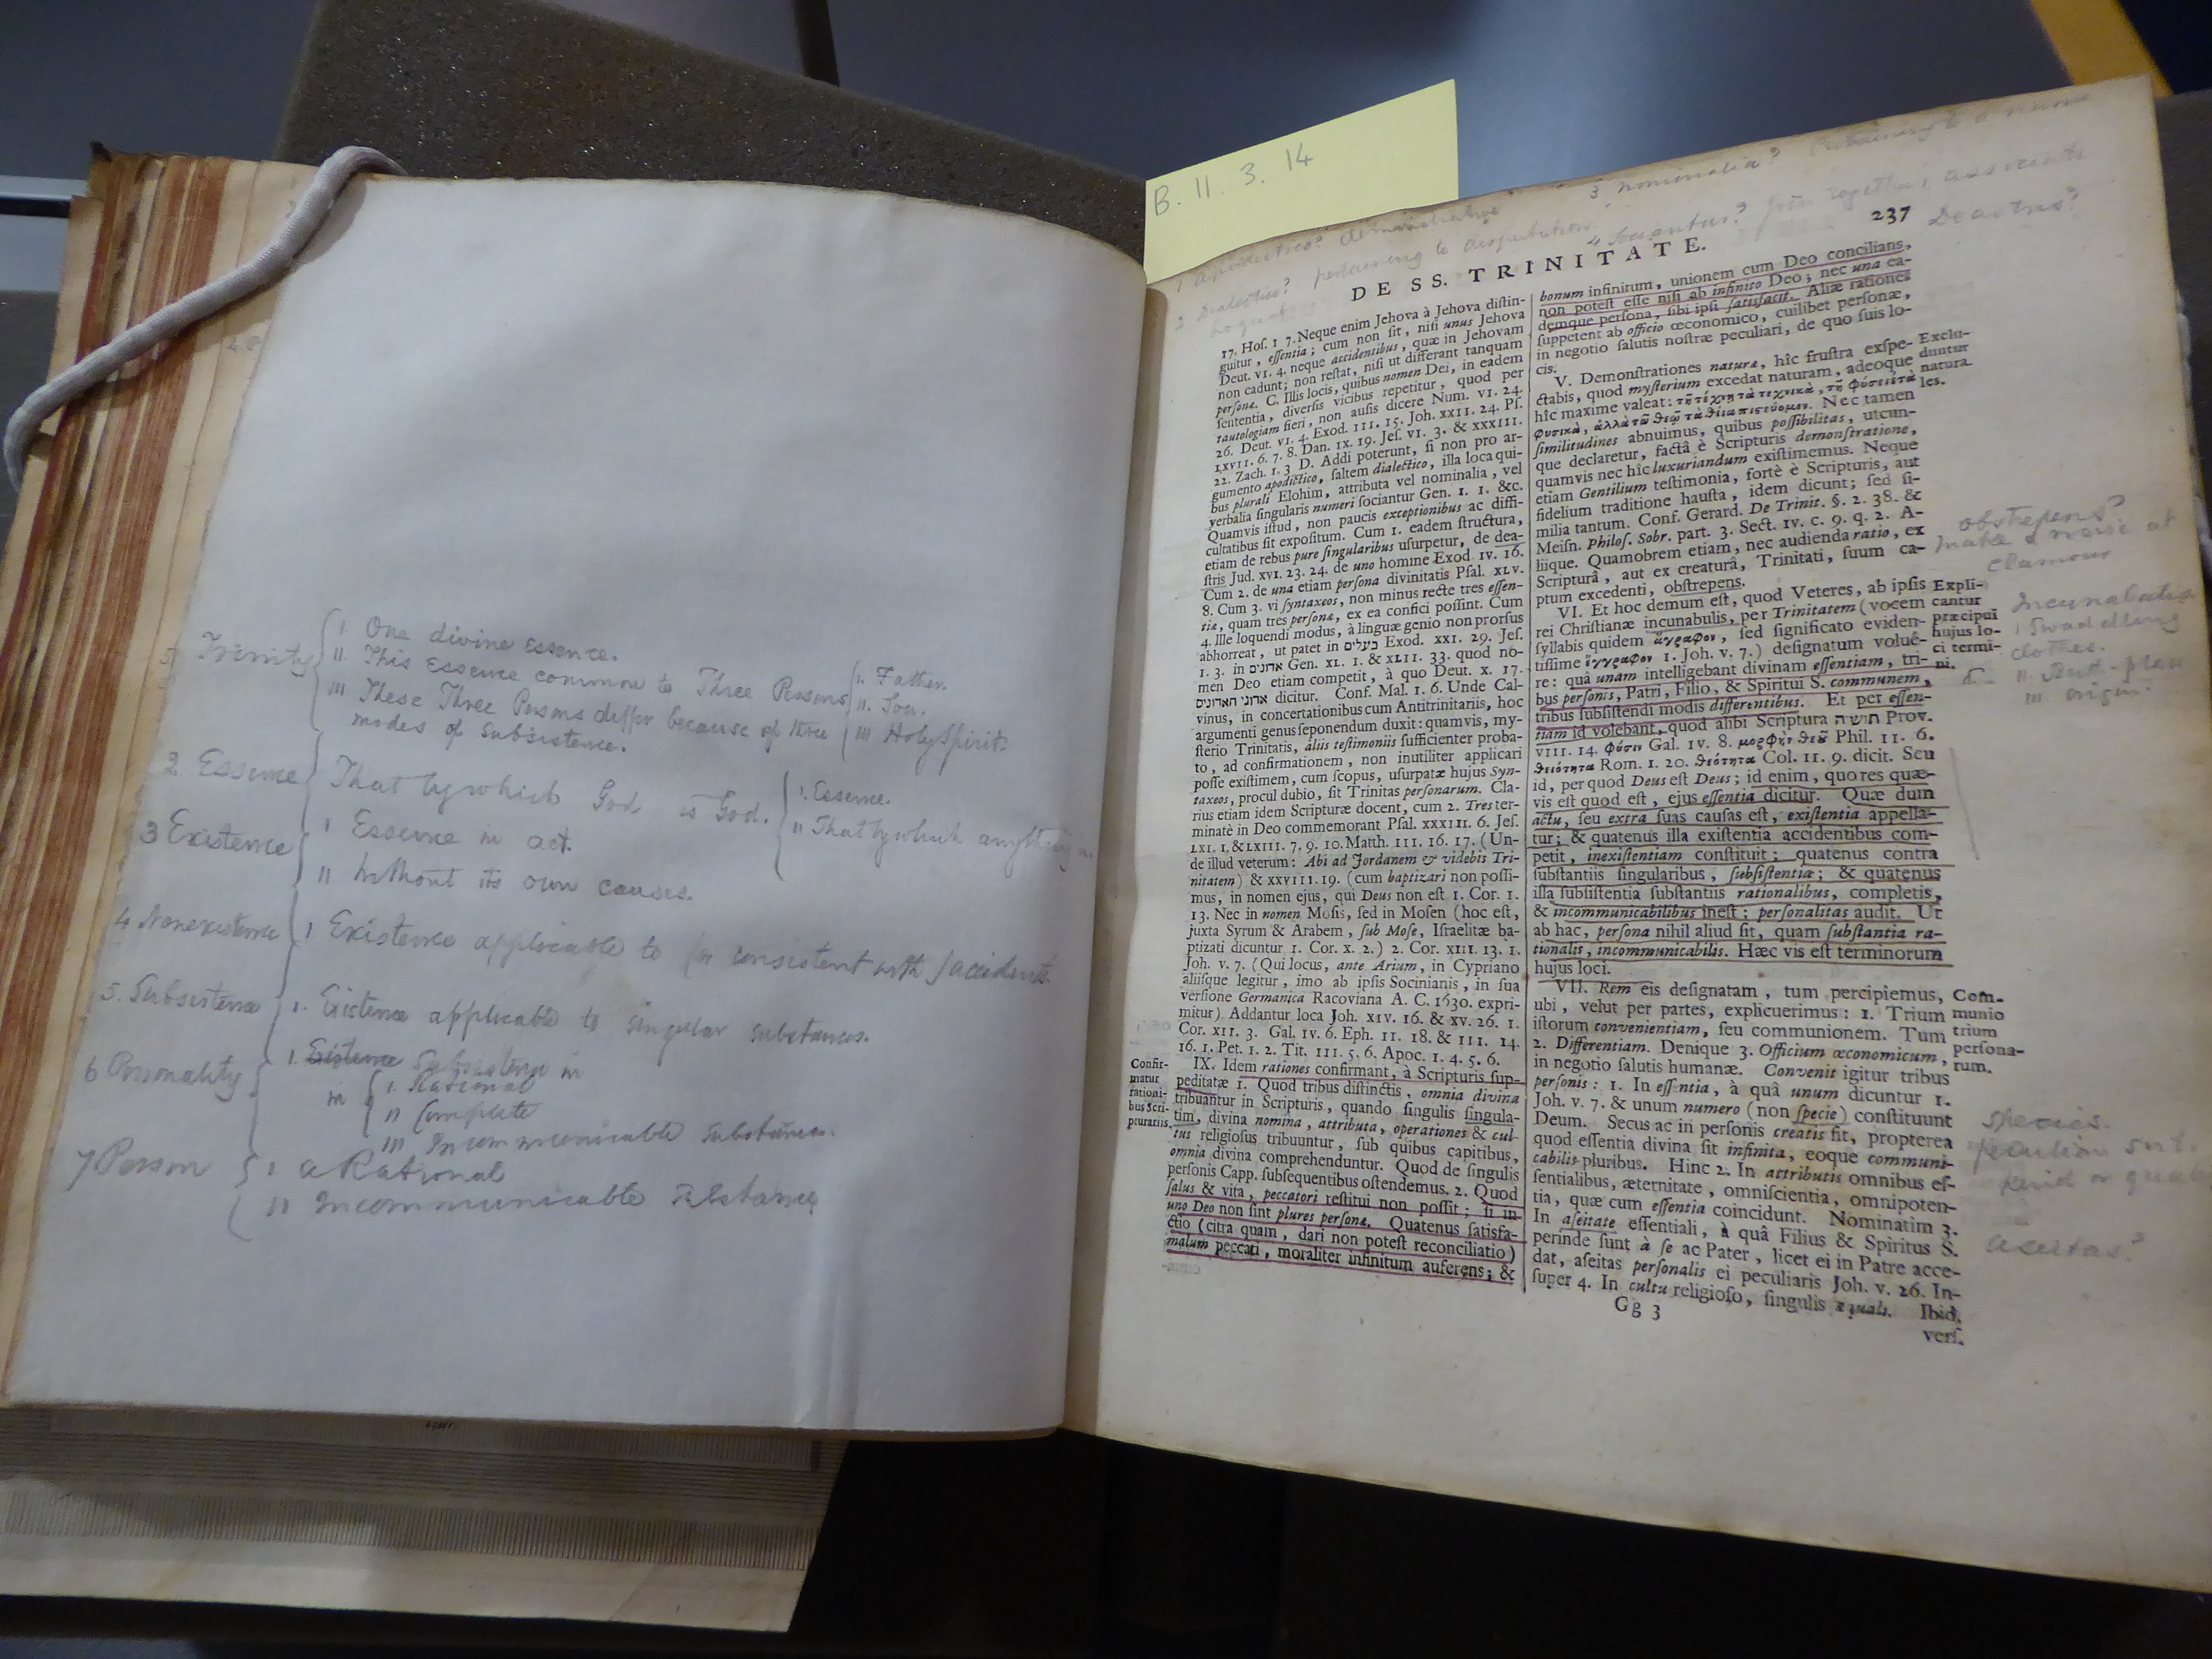 5 Trinity { I One divine essence.
II. This Essence common to Three Persons { I. Father.
II. Son.
III These Three Persons differ because of three III Holy Spirit.
modes of Subsistence.
2 Essence { That by which God is God. { I. Essence.
II That by which anything is.
3 Existence { I Essence in act.
II Without its own causes.
4 Nonexistence { I Existence applicable to (or consistent with) accidents.
5. Subsistence { I. Existence applicable to singular substances.
6 Personality { I. Existence Subsistence in
in { I. Rational
II Complete
III Incommunicable Substances.
7 Person { I a Rational
II Incommunicable Substance
B. 11. 3. 14
1 apodictico? demonstrative 3 nominalia? Pertaining to a
2 Dialectico? pertaining to disputation 4 Sociantur? join together, associate
Deastris?
237
DE SS. TRINITATE.
17. Hoſ. I 7. Neque enim Jehova à Jehova diſtin-
guitur, eſſentia; cum non ſit, niſi unus Jehova
Deut. VI. 4. neque accidentibus, quæ in Jehovam
non cadunt; non reſtat, niſi ut differant tanquam
perſonæ. C. Illis locis, quibus nomen Dei, in eadem
ſententia, diverſis vicibus repetitur, quod per
tautologiam fieri, non auſis dicere Num. VI. 24.
26. Deut. VI. 4. Exod. III. 15. Joh. XXII. 24. Pſ.
LXVII. 6. 7. 8. Dan. IX. 19. Jeſ. VI. 3. & XXXIII.
22. Zach. I. 3 D. Addi poterunt, ſi non pro ar-
gumento apodictico, ſaltem dialectico, illa loca qui-
bus plurali Elohim, attributa vel nominalia, vel
verbalia ſingularis numeri ſociantur Gen. I. 1. &c.
Quamvis iſtud, non paucis exceptionibus ac diffi-
cultatibus ſit expoſitum. Cum 1. eadem ſtructura,
etiam de rebus pure ſingularibus uſurpetur, de dea-
ſtris Jud. XVI. 23. 24. de uno homine Exod. IV. 16.
Cum 2. de una etiam perſona divinitatis Pſal. XLV.
8. Cum 3. vi ſyntaxeos, non minus recte tres eſſen-
tiæ, quam tres perſonæ, ex ea confici poſſint. Cum
4. Ille loquendi modus, à linguæ genio non prorſus
abhorreat, ut patet in בעלים Exod. XXI. 29. Jeſ.
I. 3. in אדונים Gen. XL. 1. & XLII. 33. quod no-
men Deo etiam competit, à quo Deut. X. 17.
אדוני האדונים dicitur. Conf. Mal. I. 6. Unde Cal-
vinus, in concertationibus cum Antitrinitariis, hoc
argumenti genus ſeponendum duxit: quamvis, my-
ſterio Trinitatis, aliis teſtimoniis ſufficienter proba-
to, ad confirmationem, non inutiliter applicari
poſſe exiſtimem, cum ſcopus, uſurpatæ hujus Syn-
taxeos, procul dubio, ſit Trinitas perſonarum. Cla-
rius etiam idem Scripturæ docent, cum 2. Tres ter-
minatè in Deo commemorant Pſal. XXXIII. 6. Jeſ.
LXI. 1. & LXIII. 7. 9. 10. Matth. III. 16. 17. (Un-
de illud veterum: Abi ad Jordanem & videbis Tri-
nitatem) & XXVIII. 19. (cum baptizari non poſſi-
mus, in nomen ejus, qui Deus non eſt 1. Cor. I.
13. Nec in nomen Moſis, ſed in Moſen (hoc eſt,
juxta Syrum & Arabem, ſub Moſe, Iſraelitæ ba-
ptizati dicuntur 1. Cor. X. 2.) 2. Cor. XIII. 13. 1.
Joh. V. 7. (Qui locus, ante Arium, in Cypriano
aliiſque legitur, imo ab ipſis Socinianis, in ſua
verſione Germanica Racoviana A. C. 1630. expri-
mitur) Addantur loca Joh. XIV. 16. & XV. 26. 1.
Cor. XII. 3. Gal. IV. 6. Eph. II. 18. & III. 14.
16. 1. Pet. I. 2. Tit. III. 5. 6. Apoc. I. 4. 5. 6.
Confir-
matur
rationi-
bus Scri-
pturariis.
IX. Idem rationes confirmant, à Scripturis ſup-
peditatæ 1. Quod tribus diſtinctis, omnia divina
tribuantur in Scripturis, quando ſingulis ſingula-
tim, divina nomina, attributa, operationes & cul-
tus religioſus tribuuntur, ſub quibus capitibus,
omnia divina comprehenduntur. Quod de ſingulis
perſonis Capp. ſubſequentibus oſtendemus. 2. Quod
ſalus & vita, peccatori reſtitui non poſſit; ſi in
uno Deo non ſint plures perſonæ. Quatenus ſatisfa-
ctio (citra quam, dari non poteſt reconciliatio)
malum peccati, moraliter infinitum auferens; &
bonum infinitum, unionem cum Deo concilians,
non poteſt eſſe niſi ab infinito Deo; nec una ea-
demque perſona, ſibi ipſi ſatisfacit. Aliæ rationes
ſuppetent ab officio œconomico, cuilibet perſonæ,
in negotio ſalutis noſtræ peculiari, de quo ſuis lo-
cis.
V. Demonſtrationes naturæ, hîc fruſtra exſpe-
ctabis, quod myſterium excedat naturam, adeoque
hîc maxime valeat: τῇ τέχνῃ τὰ τεχνικὰ, τῇ φύσει τὰ
φυσικὰ, ἀλλὰ τῷ θεῷ τὰ θεῖα πιστεύομεν. Nec tamen
ſimilitudines abnuimus, quibus poſſibilitas, utcun-
que declaretur, factâ è Scripturis demonſtratione,
quamvis nec hîc luxuriandum exiſtimemus. Neque
etiam Gentilium teſtimonia, fortè è Scripturis, aut
fidelium traditione hauſta, idem dicunt; ſed ſi-
milia tantum. Conf. Gerard. De Trinit. §. 2. 38. &
Meiſn. Philoſ. Sobr. part. 3. Sect. IV. c. 9. q. 2. A-
liique. Quamobrem etiam, nec audienda ratio, ex
Scripturâ, aut ex creaturâ, Trinitati, ſuum ca-
ptum excedenti, obſtrepens.
Exclu-
duntur
natura
les.
obstrepens?
make a noise at
clamour
VI. Et hoc demum eſt, quod Veteres, ab ipſis
rei Chriſtianæ incunabulis, per Trinitatem (vocem
ſyllabis quidem ἄγραφον, ſed ſignificato eviden-
tiſſime ἔγγραφον 1. Joh. V. 7.) deſignatum voluê-
re: quâ unam intelligebant divinam eſſentiam, tri-
bus perſonis, Patri, Filio, & Spiritui S. communem,
tribus ſubſiſtendi modis differentibus. Et per eſſen-
tiam id volebant, quod alibi Scriptura תושיה Prov.
VIII. 14. φύσιν Gal. IV. 8. μορφὴν θεοῦ Phil. II. 6.
θειότητα Rom. I. 20. θεότητα Col. II. 9. dicit. Seu
id, per quod Deus eſt Deus; id enim, quo res quæ-
vis eſt quod eſt, ejus eſſentia dicitur. Quæ dum
actu, ſeu extra ſuas cauſas eſt, exiſtentia appella-
tur; & quatenus illa exiſtentia accidentibus com-
petit, inexiſtentiam conſtituit; quatenus contra
ſubſtantiis ſingularibus, ſubſiſtentiæ; & quatenus
illa ſubſiſtentia ſubſtantiis rationalibus, completis,
& incommunicabilibus ineſt; perſonalitas audit. Ut
ab hac, perſona nihil aliud ſit, quam ſubſtantia ra-
tionalis, incommunicabilis. Hæc vis eſt terminorum
hujus loci.
Expli-
cantur
præcipui
hujus lo-
ci termi-
ni.
Incunabula
I Swaddling
clothes.
II. Birth-place
III origin?
VII. Rem eis deſignatam, tum percipiemus,
ubi, velut per partes, explicuerimus: 1. Trium
iſtorum convenientiam, ſeu communionem. Tum
2. Differentiam. Denique 3. Officium œconomicum,
in negotio ſalutis humanæ. Convenit igitur tribus
perſonis: 1. In eſſentia, à quâ unum dicuntur 1.
Joh. V. 7. & unum numero (non ſpecie) conſtituunt
Deum. Secus ac in perſonis creatis fit, propterea
quod eſſentia divina ſit infinita, eoque communi-
cabilis pluribus. Hinc 2. In attributis omnibus eſ-
ſentialibus, æternitate, omniſcientia, omnipoten-
tia, quæ cum eſſentia coincidunt. Nominatim 3.
In aſeitate eſſentiali, à quâ Filius & Spiritus S.
perinde ſunt à ſe ac Pater, licet ei in Patre acce-
dat, aſeitas perſonalis ei peculiaris Joh. V. 26. In-
ſuper 4. In cultu religioſo, ſingulis æquali. Ibid.
Com-
munio
trium
perſona-
rum.
species.
peculiar sort
kind or
aseitas?
Gg 3
verſ.